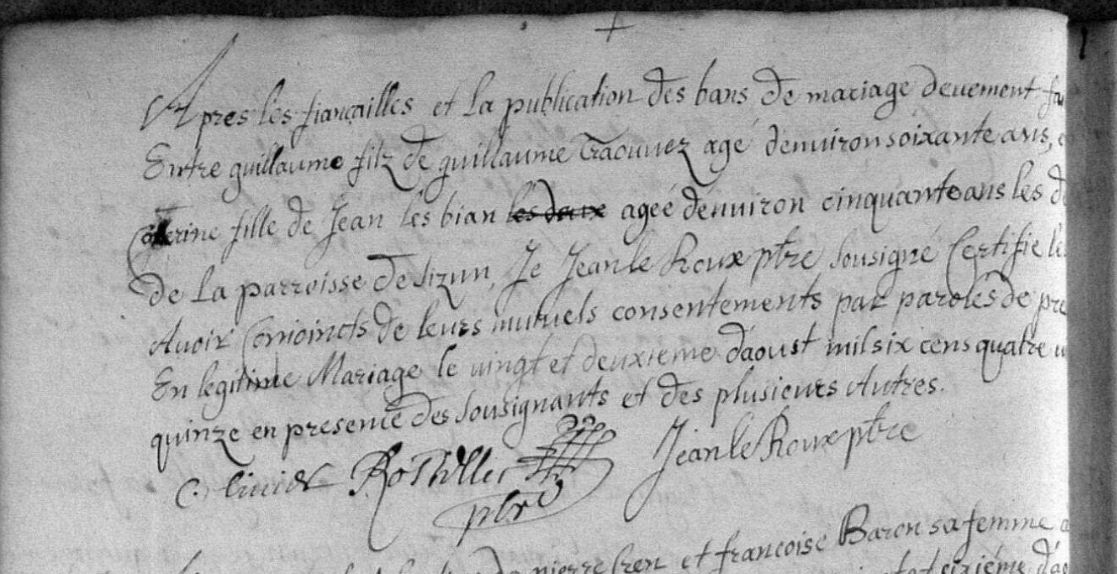 Apres les fiançailles et La publication des bans de mariage deuement
Entre guillaume filz de guillaume Traouuez agé denuiron soixante ans,
fille de Jean les bian les deux ageé denuiron cinquante ans les
de La parroisse de sizun, Je Jean le Roux ptre sousigné Certifie
Auoir Conioincts de leurs mutuels consentements par paroles de
En legitime Mariage le uingt et deuxieme daoust mil six cens quatre
quinze en presence des sousignants et des plusieurs Autres.
Jean le Roux ptre
ptre
et francoise Baron sa femme